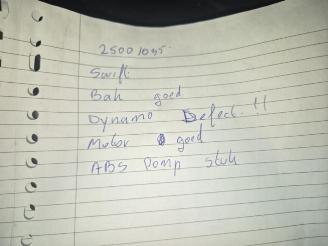 25001095.
Swift
Bak goed
Dynamo Defect !!
Motor goed
ABS Pomp stuk